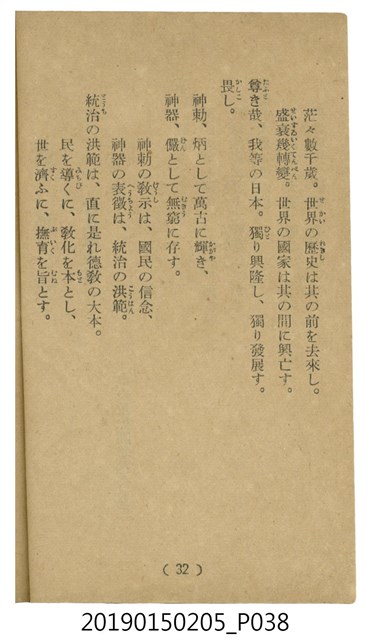 茫々數千歲。世界の歷史は其の前を去來し。
盛衰幾轉變。世界の國家は其の間に興亡す。
尊き哉、我等の日本。獨り興隆し、獨り發展す。
畏し。
神勅、炳として萬古に輝き、
神器、儼として無窮に存す。
神勅の敎示は、國民の信念、
神器の表徵は、統治の洪範。
統治の洪範は、直に是れ德敎の大本。
民を導くに、敎化を本とし、
世を濟ふに、撫育を旨とす。
( 32 )
20190150205_P038